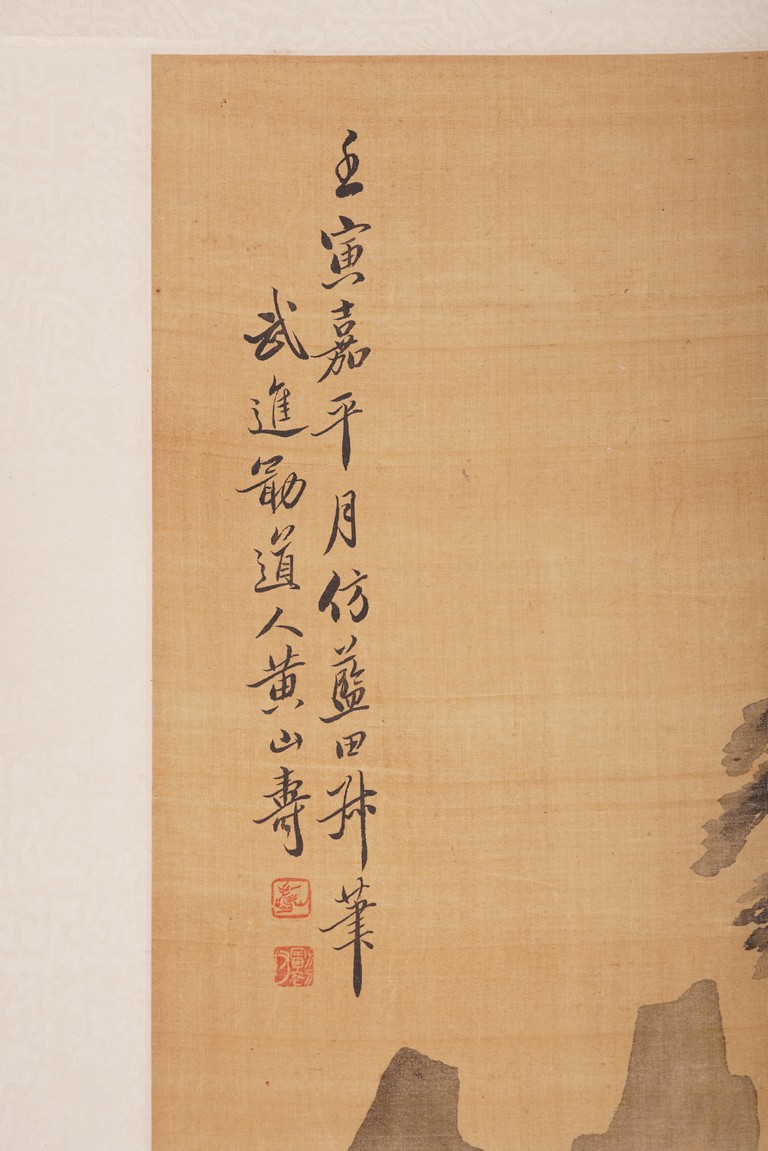 壬寅嘉平月仿藍田叔筆
武進勗道人黃山壽